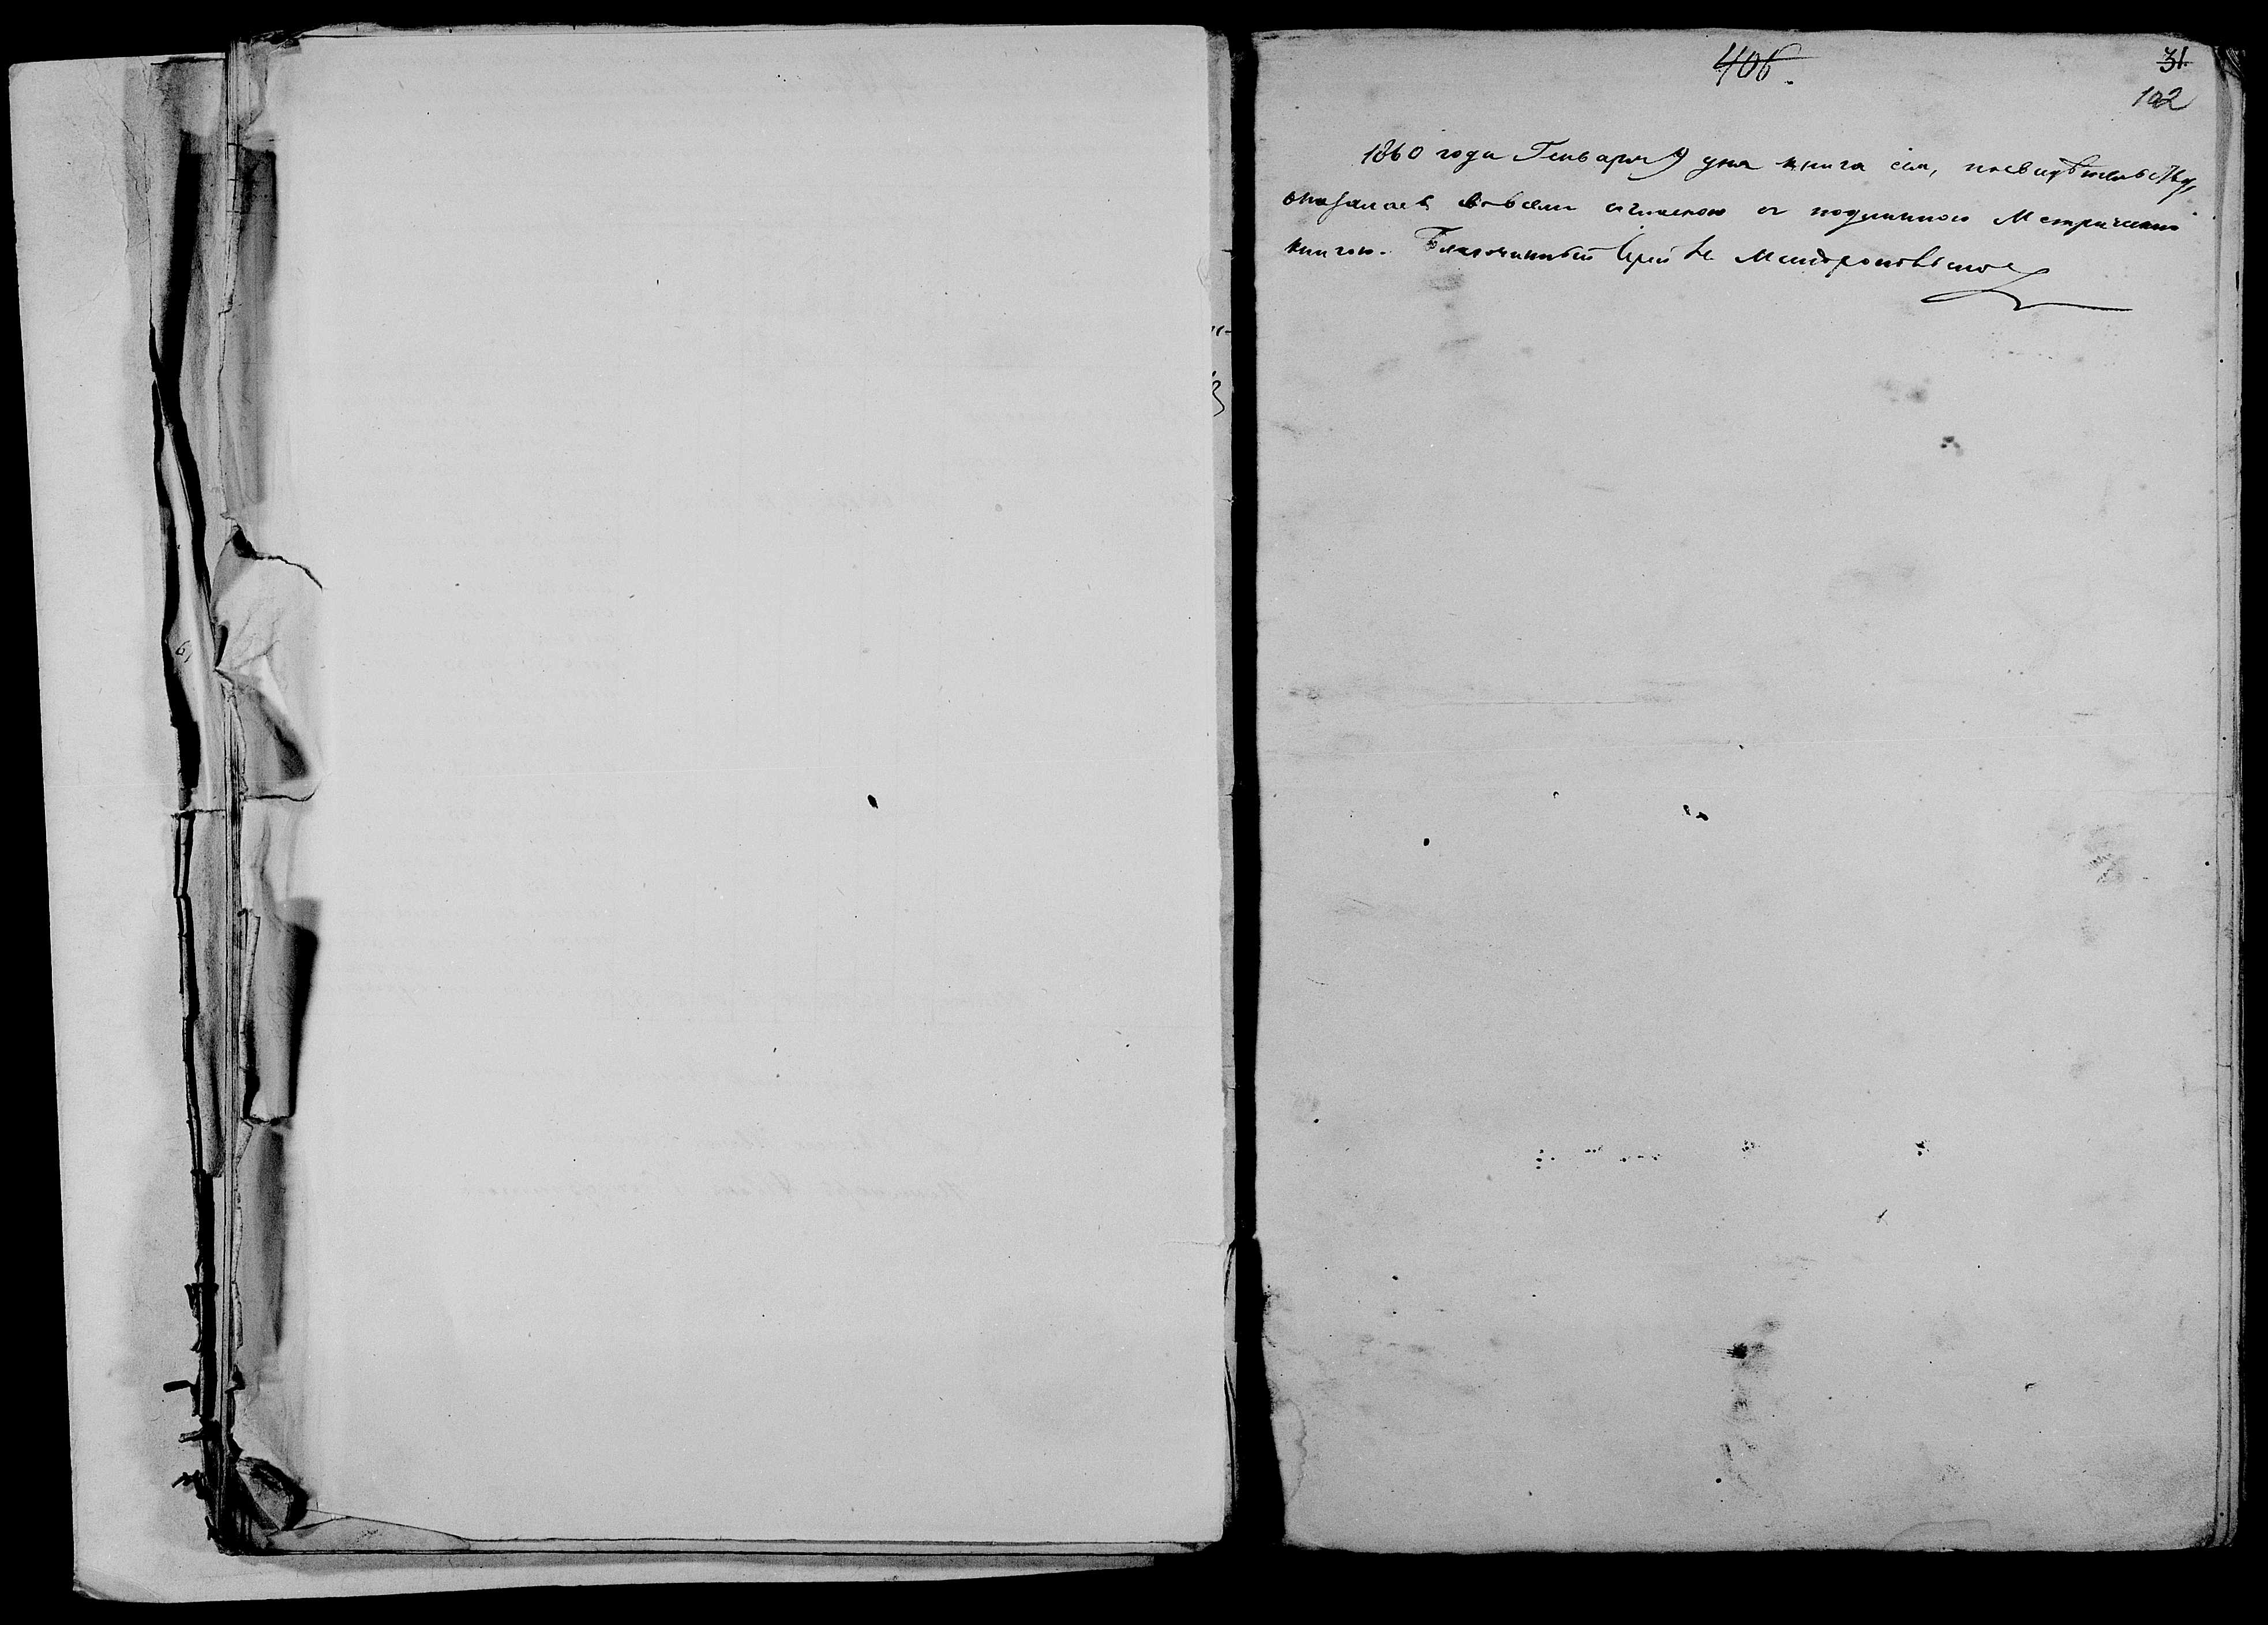 406.
31
102
1860 года Генваря 9 дня книга сія, по свидѣтельству,
оказалась во всемъ согласною съ подлинною Метрическою
книгою. Благочинный Іерей